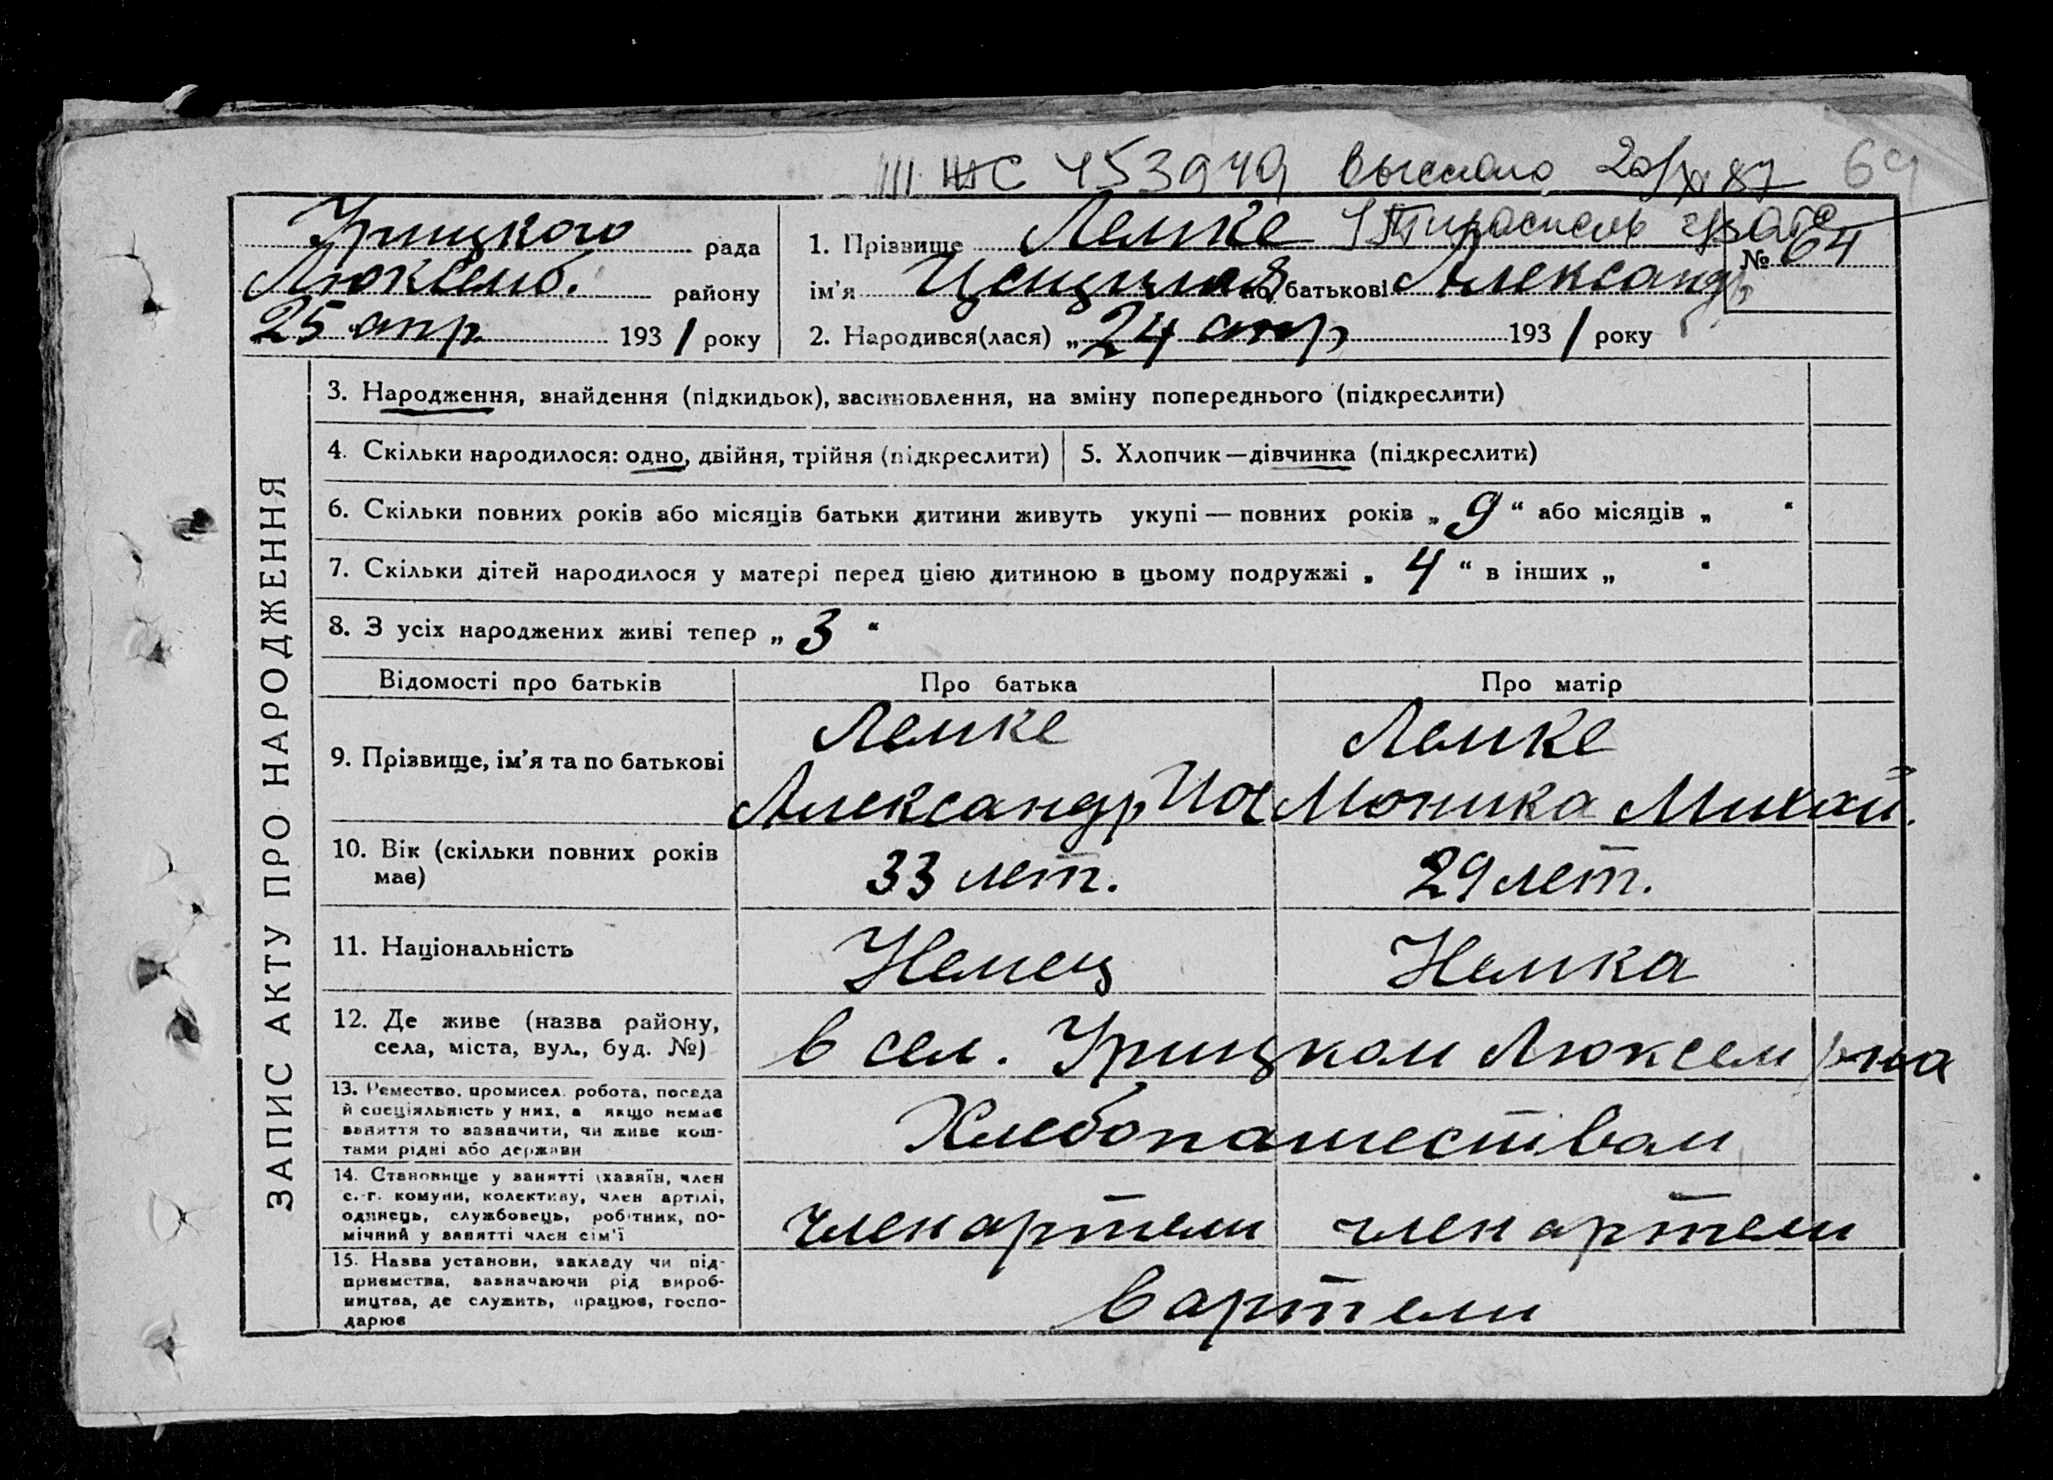 III ЖС 453949 Выслано 20/XI 87 69
г. Тирасполь
Урицкого рада
Люксемб. району
25 апр. 1931 року
1. Прізвище Лемке
ім'я Цецилия по батькові Александр.
№ 64
2. Народився(лася) „24 апр. 1931 року
ЗАПИС АКТУ ПРО НАРОДЖЕННЯ
3. Народження, знайдення (підкидьок), засиновлення, на зміну попереднього (підкреслити)
4. Скільки народилося: одно, двійня, трійня (підкреслити)
5. Хлопчик—дівчинка (підкреслити)
6. Скільки повних років або місяців батьки дитини живуть укупі — повних років „ 9 “ або місяців „ “
7. Скільки дітей народилося у матері перед цією дитиною в цьому подружжі „ 4 “ в інших „ “
8. З усіх народжених живі тепер „ 3 “
Відомості про батьків Про батька Про матір
9. Прізвище, ім'я та по батькові
Лемке Лемке
Александр Иос Моника Михай.
10. Вік (скільки повних років
має)
33 лет. 29 лет.
11. Національність Немец Немка
12. Де живе (назва району,
села, міста, вул., буд. №)
в сел. Урицком Люксем р-на
13. Ремество, промисел, робота, посада
й спеціяльність у них, а якщо немає
заняття то зазначити, чи живе кош-
тами рідні або держави
Хлебопашеством
14. Становище у занятті (хазяїн, член
с.-г. комуни, колективу, член артілі,
одинець, службовець, робітник, по-
мічний у занятті член сім'ї
член артели член артели
15. Назва установи, закладу чи під-
приємства, зазначаючи рід вироб-
ництва, де служить, працює, госпо-
дарює
в артели